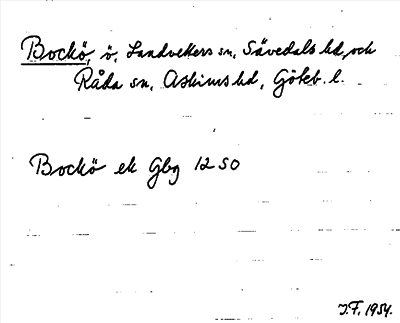 Bockö, ö, Landvetters sn, Sävedals hd, och
Råda sn, Askims hd, Göteb. l.
Bockö ek Gbg 12 SO
J.F. 1954.